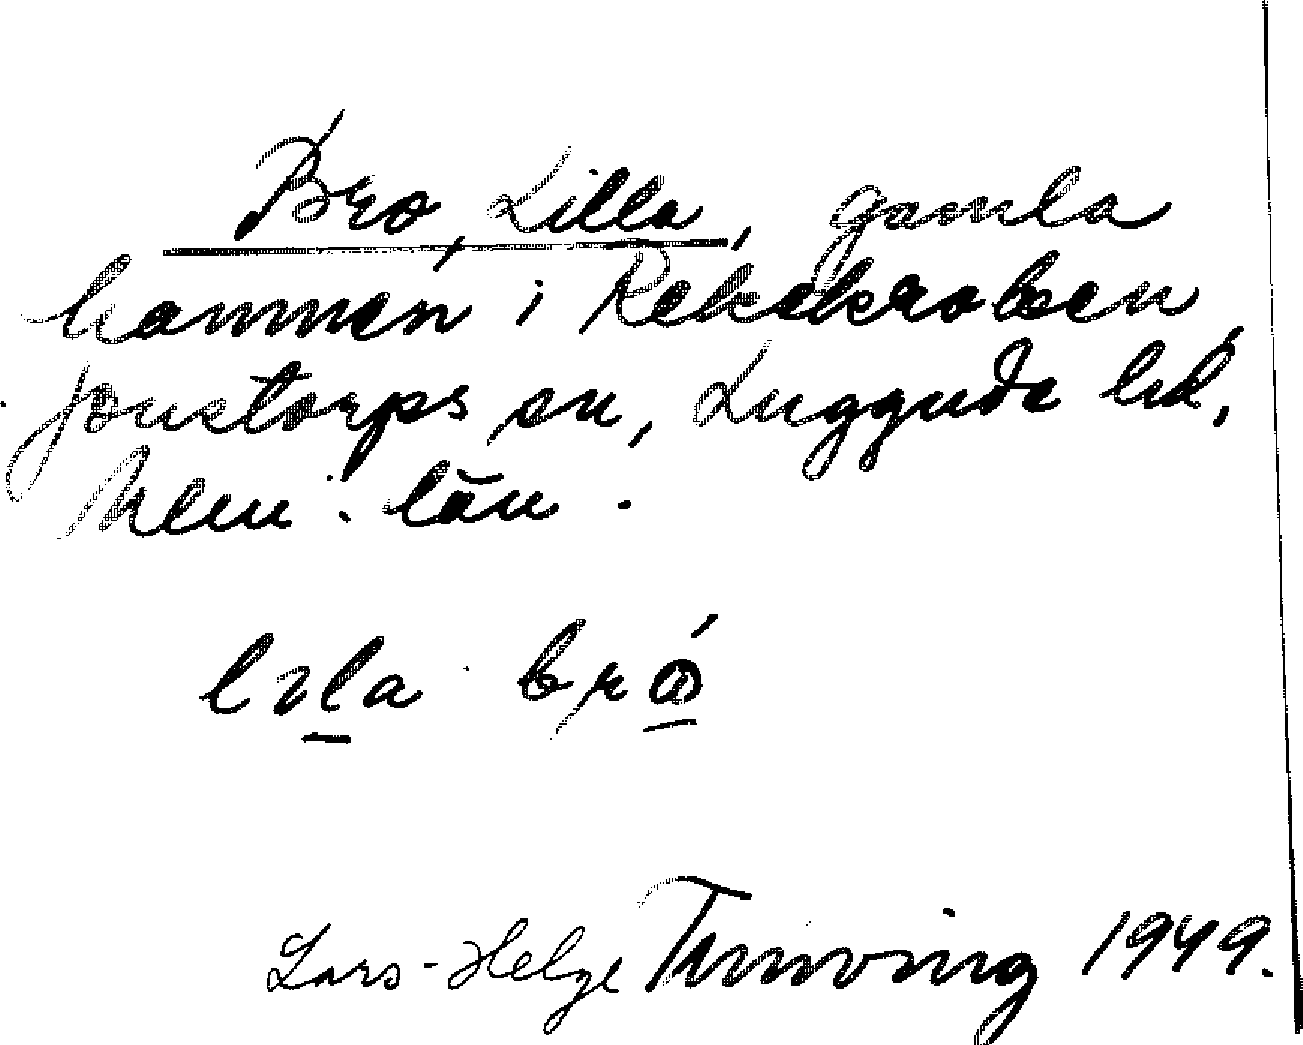 Bro, Lilla, gamla
hamnen i Rekekroken,
Jonstorps sn, Luggude hd,
Mlm. län.
lɩla bró
Lars-Helge Tunving 1949.